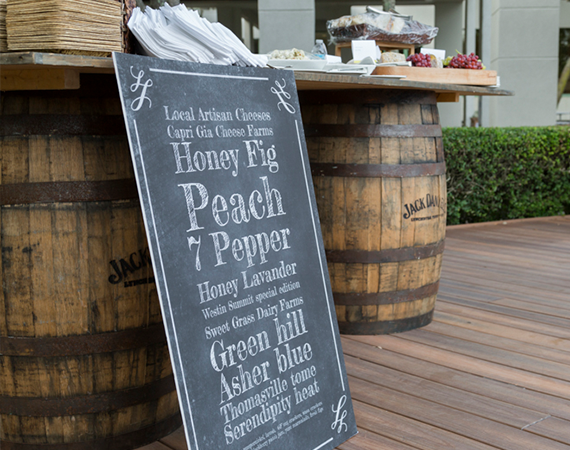 Local Artisan Cheeses
Capri Gia Cheese Farms
Honey Fig
Peach
7 Pepper
Honey Lavander
Westin Summit special edition
Sweet Grass Dairy Farms
Green hill
Asher blue
Thomasville tome
Serendipity heat
JACK DANI
JACK